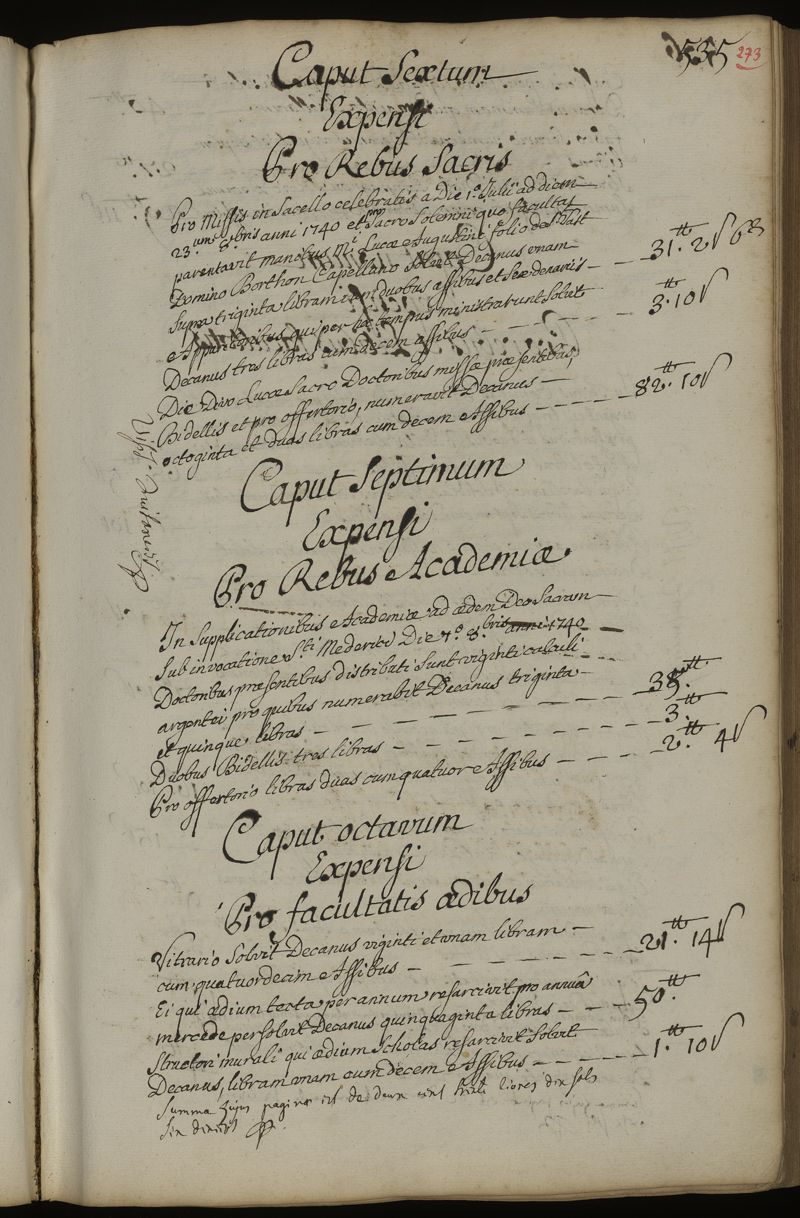 535 273
Caput Sextum
Expensi
Pro Rebus Sacris
Pro Missis in Sacello celebratis a Die 1.a Julii ad diem
23.um 8.bris anni 1740 et pro Sacro Solemni quo facultas
parentavit manibus M.i Lucæ Augustini folio de St Vast
Domino Borthon Capellano Solvit Decanus unam
supra triginta libram cum duobus assibus et Sex denariis — — 31.tt 2s 6d
Apparitoribus qui per hoc tempus ministrarunt Solvit
Decanus tres libras cum decem assibus — — — — 3.tt 10s
Die Divo Lucæ Sacro Doctoribus missæ præsentibus,
Bidellis et pro offertorio, numeravit Decanus —
octoginta et duas libras cum decem Assibus — — — — 82.tt 10s
Caput Septimum
Expensi
Pro Rebus Academiæ.
In Supplicationibus Academiæ ad ædem Deo Sacram
Sub invocatione S.ti Mederici Die 7.a 8.bris anni 1740
Doctoribus præsentibus distributi Sunt viginti calculi
argentei pro quibus numerabit Decanus triginta —
et quinque libras — — — — — — — 35.tt
Duobus Bidellis tres libras — — — — — — 3.tt
Pro offertorio libras duas cum quatuor Assibus — — — — 2.tt 4s
Caput octavum
Expensi
Pro facultatis ædibus
Vitrario Solvit Decanus viginti et unam libram —
cum quatuordecim Assibus — — — — — — — 21.tt 14s
Ei qui ædium tecta per annum resarcivit pro annuâ
mercede persolvit Decanus quinquaginta libras — — — 50.tt
Structori murali qui ædium Scholas resarcivit Solvit
Decanus, libram unam cum decem Assibus — — — — — 1.tt 10s
Summa hujus paginæ est de deux cent trente livres dix sols
six deniers